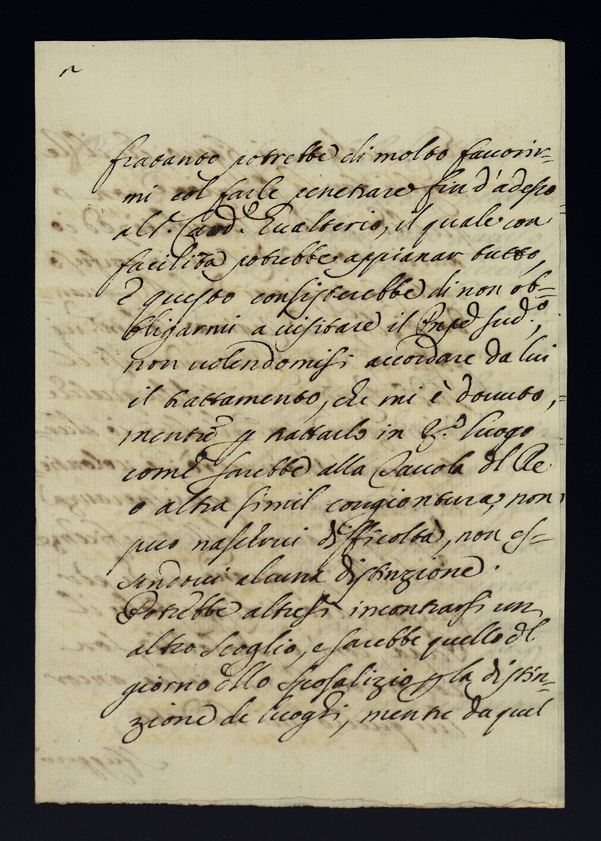 frattanto potrebbe di molto favorir-
mi col farle penetrare fin d'adesso
al S. Card.e Gualterio, il quale con
facilità potrebbe appianar tutto,
E questo consisterebbe di non ob-
bligarmi a visitare il sud.o,
non volendomisi accordare da lui
il trattamento, che mi è dovuto,
mentre p trattarlo in 3.o luogo
come sarebbe alla Tavola del Re
o altra simil congiontura, non
può nascervi difficoltà, non es-
sendovi alcuna distinzione.
Potrebbe altresì incontrarsi un
altro scoglio, e sarebbe quello del
giorno dello sposalizio p la distin-
zione de luoghi, mentre da quel